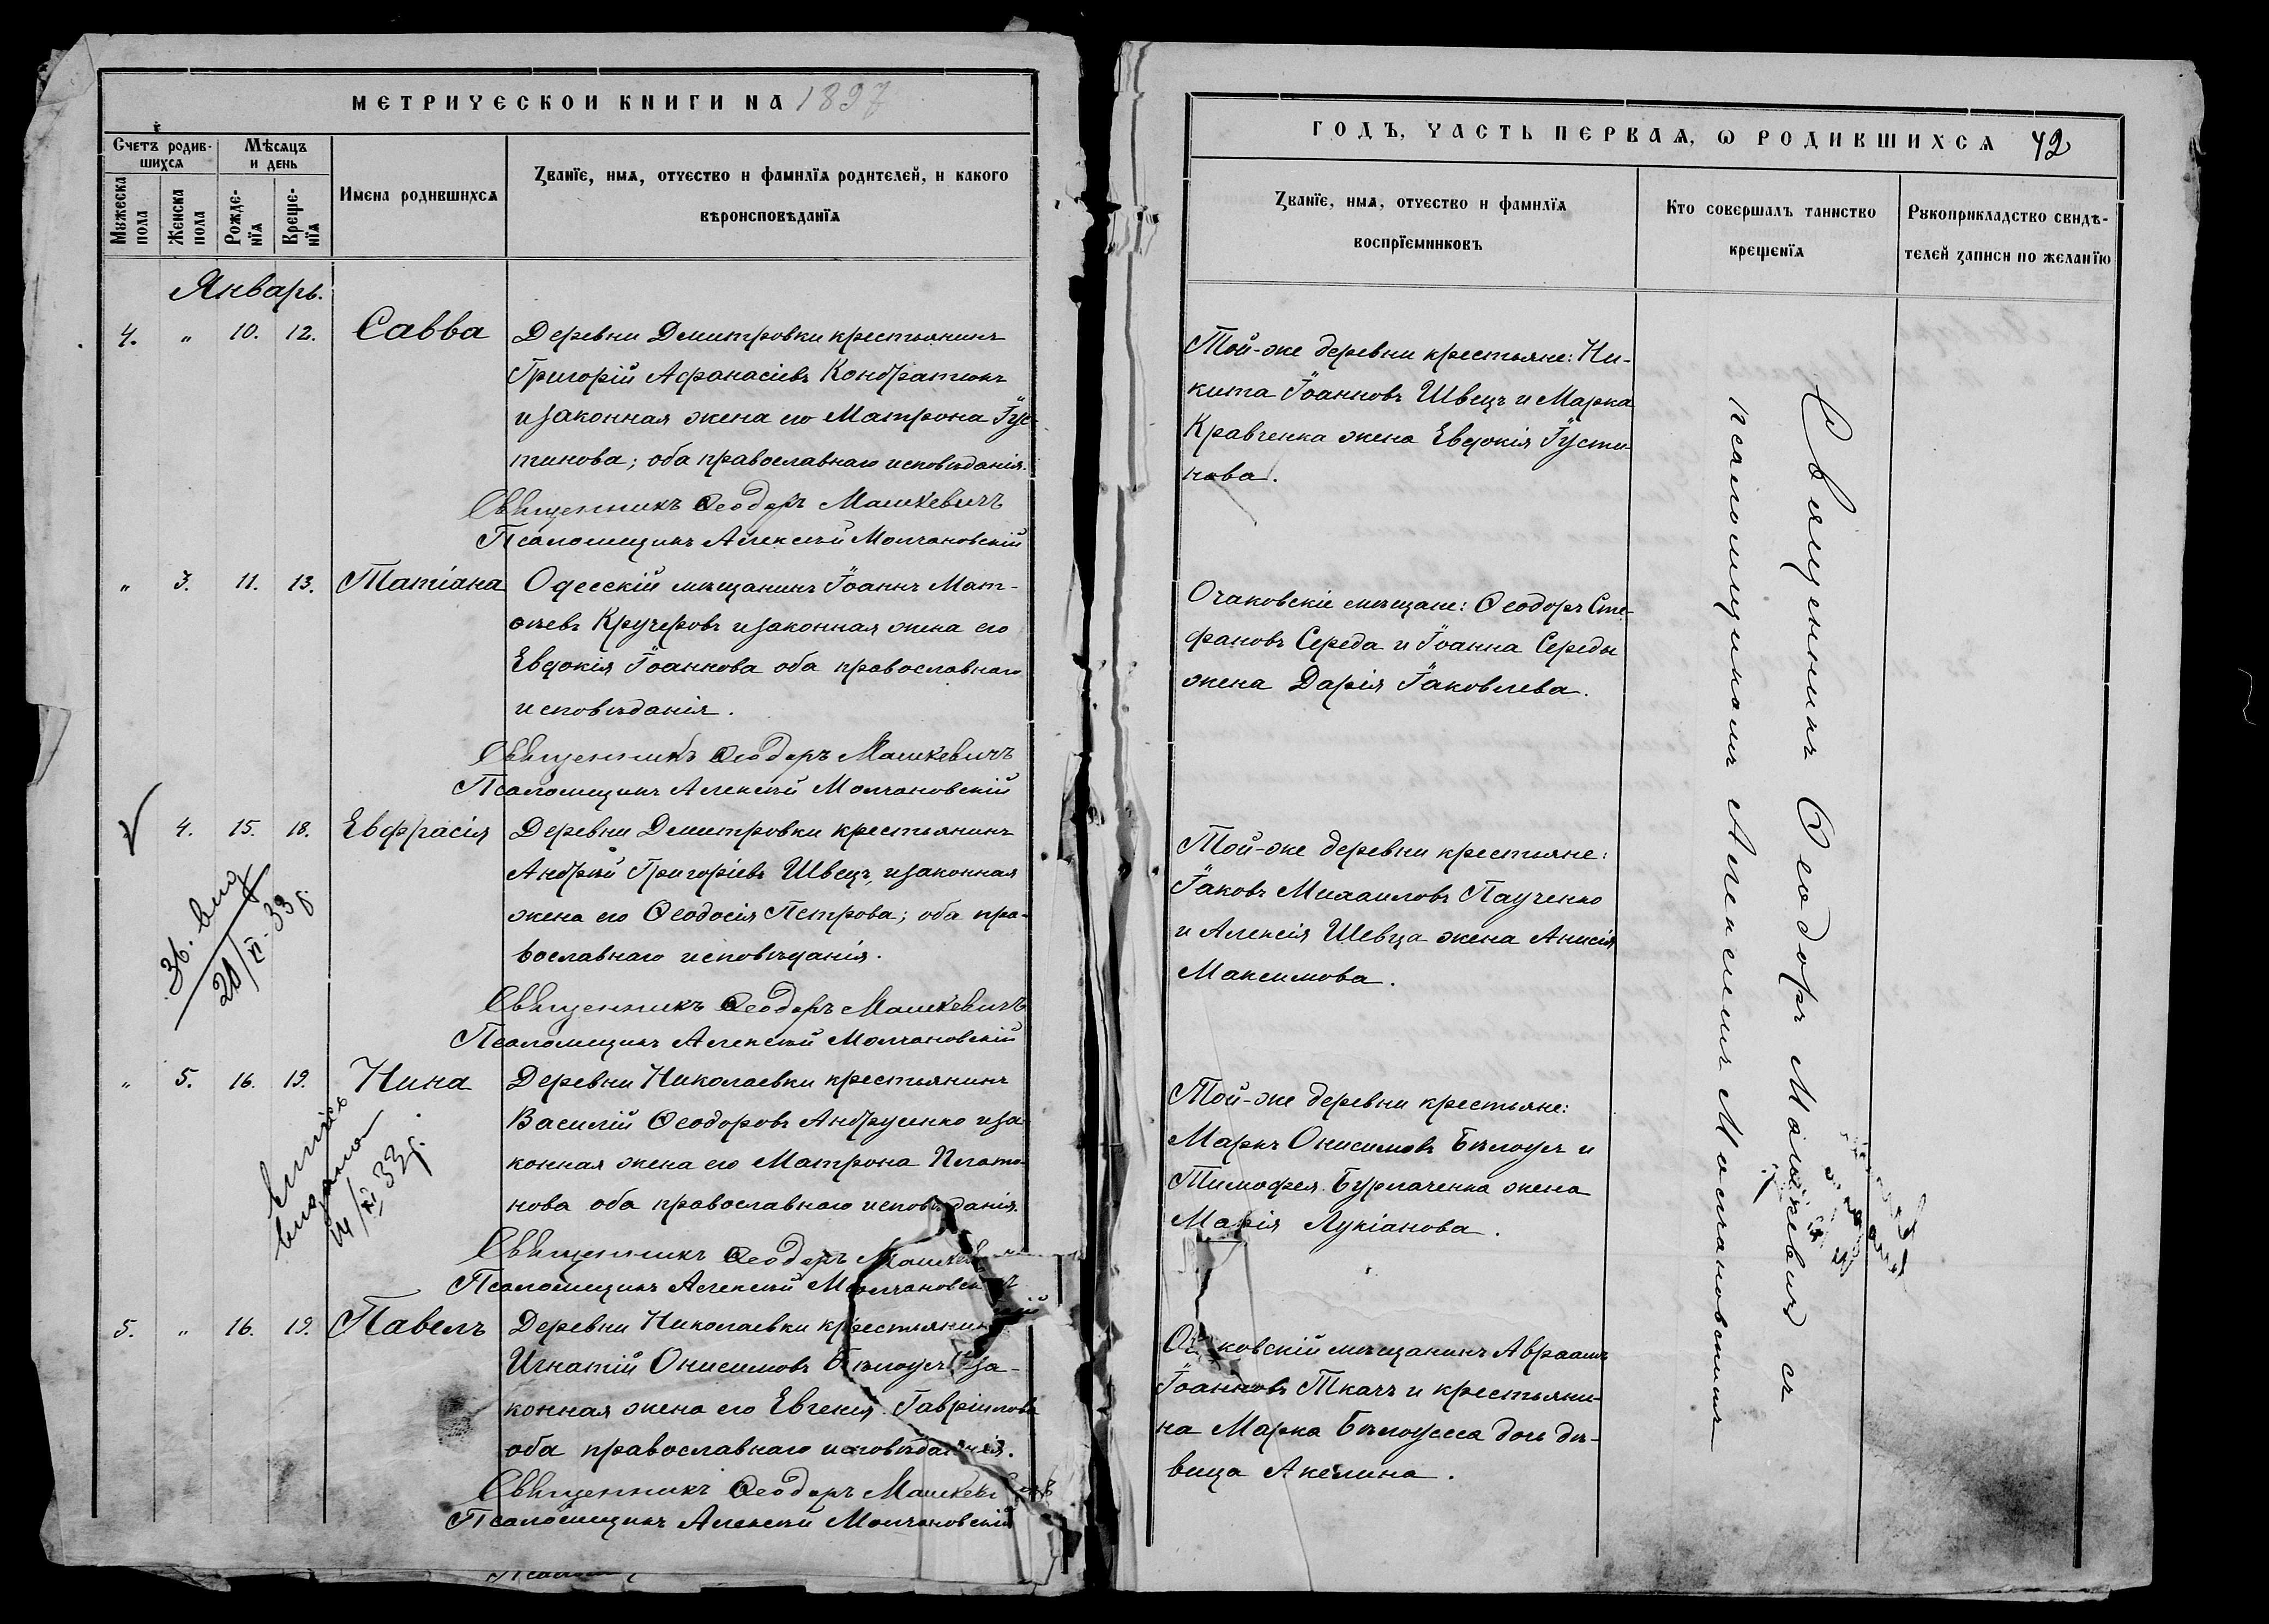 МЕТРИЧЕСКОЙ КНИГИ НА 1897
Счетъ родив-
шихся
Мѣсяцъ
и день
Мужеска
пола
Женска
пола
Рожде-
нїя
Креще-
нїя
Имена родившихся
Званїе, имя, отчество и фамилїя родителей, и какого
вѣроисповѣданїя
Январь.
4. " 10. 12. Савва Деревни Димитровки крестьянинъ
Григорій Аѳанасіевъ Кондратюкъ
и законная жена его Матрона Іус-
тинова; оба православнаго исповѣданія.
Священникъ Ѳеодоръ Машкевичъ
Псаломщикъ Алексѣй Молчановскій
" 3. 11. 13. Татіана Одесскій мѣщанинъ Іоаннъ Мат-
ѳѣевъ Кручеровъ и законная жена его
Евдокія Іоаннова оба православнаго
исповѣданія.
Священникъ Ѳеодоръ Машкевичъ
Псаломщикъ Алексѣй Молчановскій
4. 15. 18. Евфрасія Деревни Димитровки крестьянинъ
Андрей Григоріевъ Швецъ, и законная
жена его Ѳеодосія Петрова; оба пра-
вославнаго исповѣданія.
Зб. вид
20/VI. 33 р.
Священникъ Ѳеодоръ Машкевичъ
Псаломщикъ Алексѣй Молчановскій
" 5. 16. 19. Нина Деревни Николаевки крестьянинъ
Василій Ѳеодоровъ Андрусенко и за-
конная жена его Матрона Плато-
нова оба православнаго исповѣданія.
33 р.
Священникъ Ѳеодоръ Машкевичъ
Псаломщикъ Алексѣй Молчановскій
5. " 16. 19. Павелъ Деревни Николаевки крестьянинъ
Игнатій Онисимовъ Бѣлоусъ и за-
конная жена его Евгенія Гавріилова
оба православнаго исповѣданія.
Священникъ Ѳеодоръ Машкевичъ
Псаломщикъ Алексѣй Молчановскій
ГОДЪ, ЧАСТЬ ПЕРВАЯ, Ѡ РОДИВШИХСЯ 42
Званїе, имя, отчество и фамилїя
воспрїемниковъ
Кто совершалъ таинство
крещенїя
Рукоприкладство свидѣ-
телей записи по желанїю
Той-же деревни крестьяне: Ни-
кита Іоанновъ Швецъ и Марка
Кравченка жена Евдокія Іусти-
нова.
Очаковскіе мѣщане: Ѳеодоръ Сте-
фановъ Середа и Іоанна Середы
жена Дарія Іаковлева.
Той-же деревни крестьяне:
Іаковъ Михаиловъ Паученко
и Алексія Шевца жена Анисія
Максимова.
Той-же деревни крестьяне:
Маркъ Онисимовъ Бѣлоусъ и
Тимоѳея Бурлаченка жена
Марія Лукіанова.
Очаковскій мѣщанинъ Авраамъ
Іоанновъ Ткачъ и крестьяни-
на Марка Бѣлоусса дочь дѣ-
вица Акелина.
Священникъ Ѳеодоръ Машкевичъ съ
псаломщикомъ Алексѣемъ Молчановскимъ